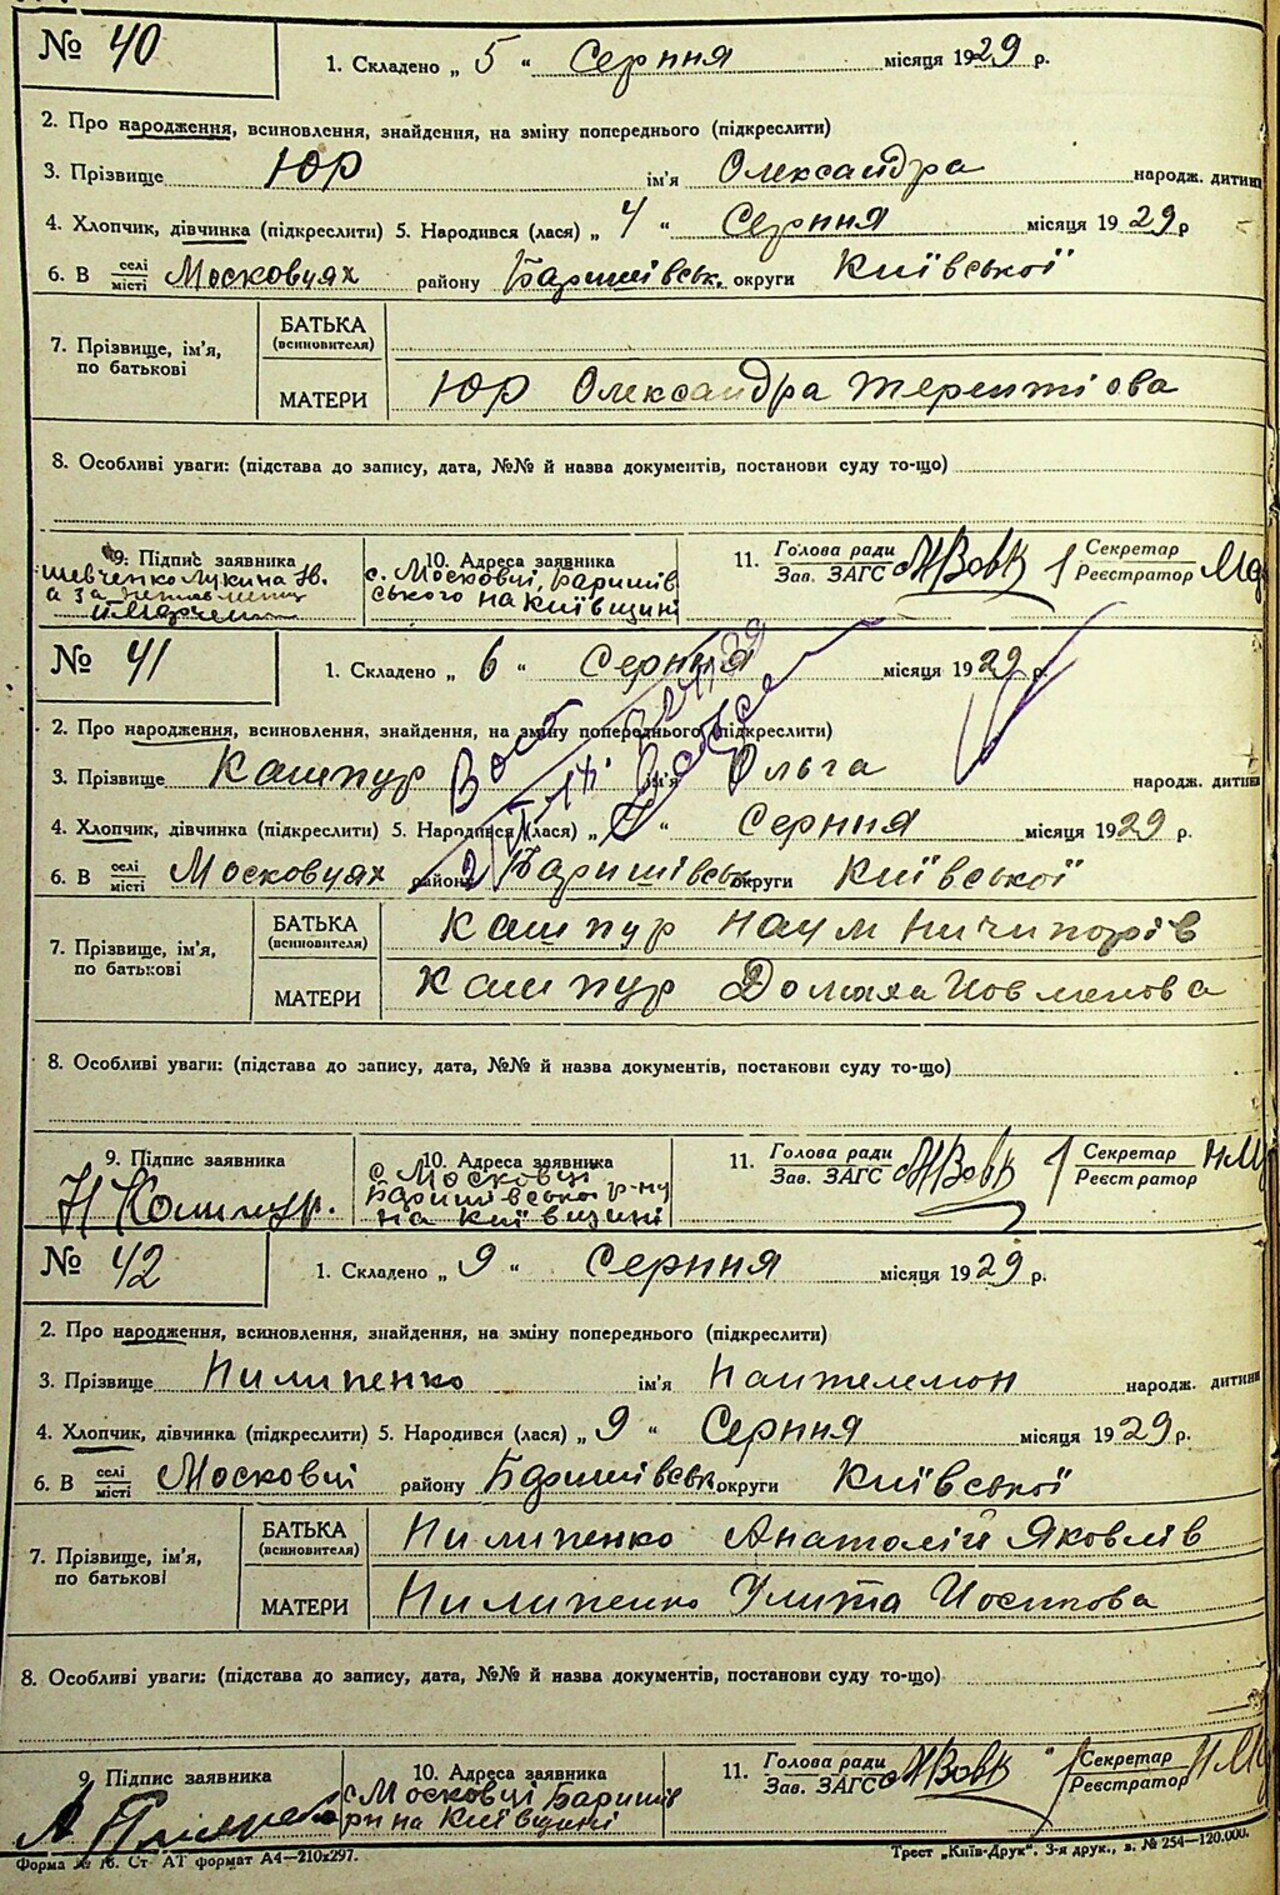 № 40
1. Складено „ 5 “ Серпня місяця 1929 р.
2. Про народження, всиновлення, знайдення, на зміну попереднього (підкреслити)
3. Прізвище Юр ім'я Олександра народж. дитини
4. Хлопчик, дівчинка (підкреслити) 5. Народився (лася) „ 4 “ Серпня місяця 1929 р
6. В селі місті Московцях району Баришівськ. округи Київської
7. Прізвище, ім'я, по батькові
БАТЬКА (всиновителя)
МАТЕРИ Юр Олександра Терентіова
8. Особливі уваги: (підстава до запису, дата, №№ й назва документів, постанови суду то-що)
9. Підпис заявника
Шевченко Лукина
а за
10. Адреса заявника
с. Московці, Баришів
ського на Київщині
11. Голова ради Зав. ЗАГС НВовк Секретар Реєстратор
№ 41
1. Складено „ 6 “ Серпня місяця 1929 р.
2. Про народження, всиновлення, знайдення, на зміну попереднього (підкреслити)
3. Прізвище Кашпур ім'я Ольга народж. дитини
4. Хлопчик, дівчинка (підкреслити) 5. Народився (лася) „ “ Серпня місяця 1929 р.
6. В селі місті Московцях району Баришівськ округи Київської
7. Прізвище, ім'я, по батькові
БАТЬКА (всиновителя) Кашпур Наум Ничипорів
МАТЕРИ Кашпур Домаха
8. Особливі уваги: (підстава до запису, дата, №№ й назва документів, постанови суду то-що)
9. Підпис заявника
Н Кашпур.
10. Адреса заявника
с Московці
Баришівської р-ну
на Київщині
11. Голова ради Зав. ЗАГС НВовк Секретар Реєстратор
№ 42
1. Складено „ 9 “ Серпня місяця 1929 р.
2. Про народження, всиновлення, знайдення, на зміну попереднього (підкреслити)
3. Прізвище Пилипенко ім'я Пантелемон народж. дитини
4. Хлопчик, дівчинка (підкреслити) 5. Народився (лася) „ 9 “ Серпня місяця 1929 р.
6. В селі місті Московці району Баришівськ округи Київської
7. Прізвище, ім'я, по батькові
БАТЬКА (всиновителя) Пилипенко Анатолій Яковлів
МАТЕРИ Пилипенко Улита Иосипова
8. Особливі уваги: (підстава до запису, дата, №№ й назва документів, постанови суду то-що)
9. Підпис заявника
10. Адреса заявника
с Московці Баришів
рн на Київщині
11. Голова ради Зав. ЗАГС НВовк Секретар Реєстратор
Форма № 16. Ст АТ формат А4—210х297.
Трест „Київ-Друк“. 3-я друк., в. № 254—120.000.